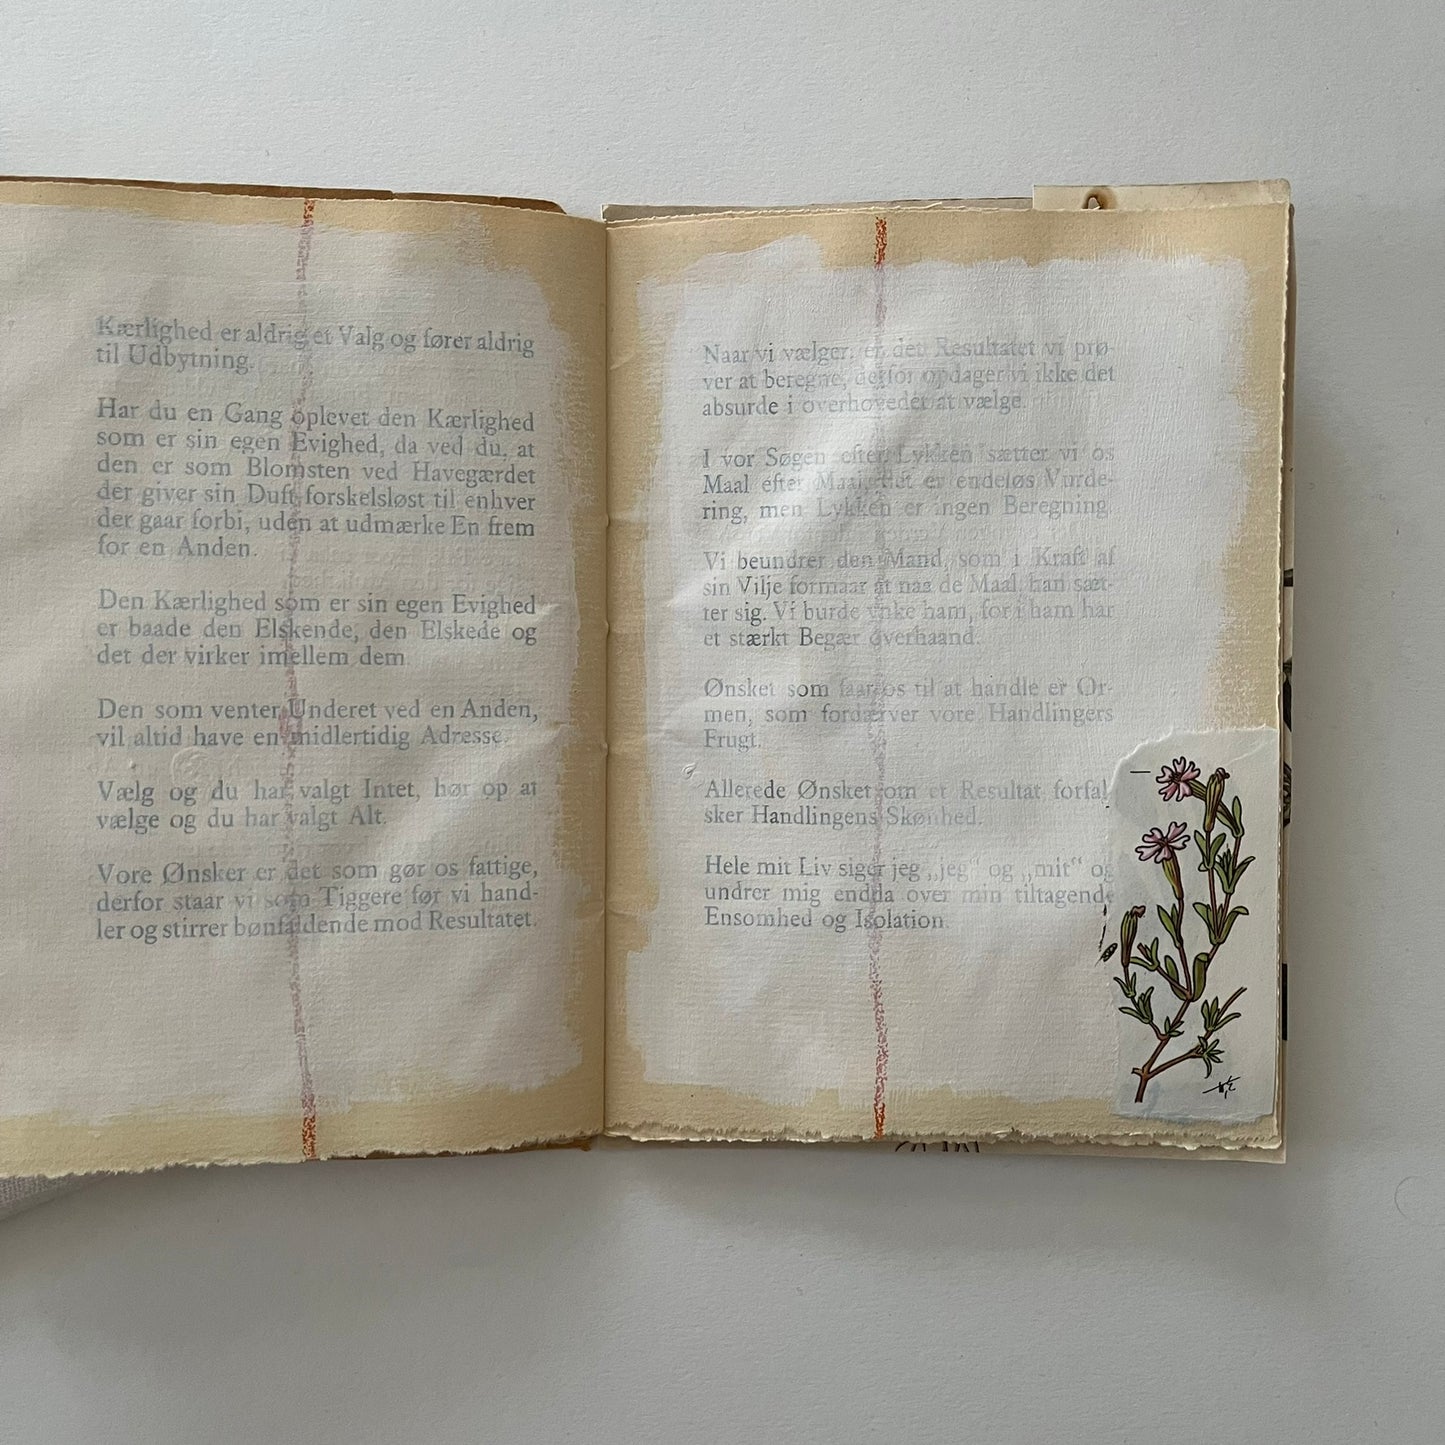 Kærlighed er aldrig et Valg og fører aldrig
til Udbytning.
Har du en Gang oplevet den Kærlighed
som er sin egen Evighed, da ved du, at
den er som Blomsten ved Havegærdet
der giver sin Duft forskelsløst til enhver
der gaar forbi, uden at udmærke En frem
for en Anden.
Den Kærlighed som er sin egen Evighed
er baade den Elskende, den Elskede og
det der virker imellem dem.
Den som venter Underet ved en Anden,
vil altid have en midlertidig Adresse.
Vælg og du har valgt Intet, hør op at
vælge og du har valgt Alt.
Vore Ønsker er det som gør os fattige,
derfor staar vi som Tiggere før vi hand-
ler og stirrer bønfaldende mod Resultatet.
Naar vi vælger, er det Resultatet vi prø-
ver at beregne, derfor opdager vi ikke det
absurde i overhovedet at vælge.
I vor Søgen efter Lykken sætter vi os
Maal efter Maal, det er endeløs Vurde-
ring, men Lykken er ingen Beregning.
Vi beundrer den Mand, som i Kraft af
sin Vilje formaar at naa de Maal, han sæt-
ter sig. Vi burde ynke ham, for i ham har
et stærkt Begær overhaand.
Ønsket som faar os til at handle er Or-
men, som fordærver vore Handlingers
Frugt.
Allerede Ønsket om et Resultat forfal
sker Handlingens Skønhed.
Hele mit Liv siger jeg „jeg“ og „mit“ og
undrer mig endda over min tiltagende
Ensomhed og Isolation.